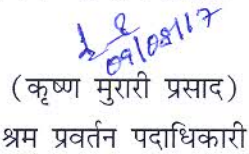 09/08/17
(कृष्ण मुरारी प्रसाद)
श्रम प्रवर्तन पदाधिकारी